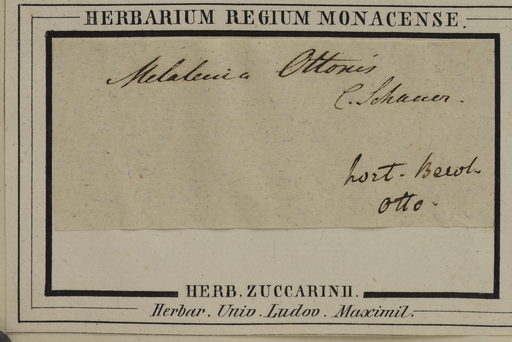 HERBARIUM REGIUM MONACENSE.
Melaleuca Ottonis
C. Schauer.
hort. Berol.
Otto.
HERB. ZUCCARINII.
Herbar. Univ. Ludov. Maximil.